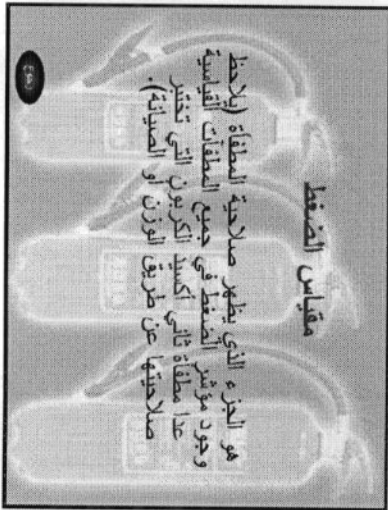 مقياس الضغط
هو الجزء الذي يظهر صلاحية المطفأة (يلاحظ
وجود مؤشر الضغط في جميع المطفآت القياسية
عدا مطفأة ثاني أكسيد الكربون التي تختبر
صلاحيتها عن طريق الوزن أو الصيانة).